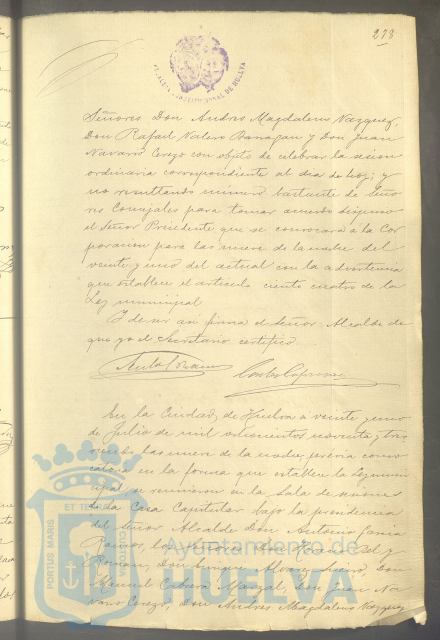 273
ALCALDIA CONSTITUCIONAL DE HUELVA
Señores Don Andres Magdaleno Vazquez,
Don Rafael Valero Banagan y Don Juan
Navarro Cerejo con objeto de celebrar la sesion
ordinaria correspondiente al dia de hoy; y
no resultando número bastante de Seño
res Concejales para tomar acuerdo dispuso
el Señor Presidente que se convocara á la Cor
poracion para las nueve de la noche del
veinte y uno del actual con la advertencia
que establece el articulo ciento cuatro de la
Ley municipal
Y de ser asi firma el Señor Alcalde de
que yo el Secretario certifico
En la Ciudad de Huelva á veinte y uno
de Julio de mil ochocientos noventa y tres
siendo las nueve de la noche, previa convo
catoria en la forma que establece la Ley muni
cipal se reunieron en la Sala de sesiones
de la Casa Capitular bajo la presidencia
del Señor Alcalde Don Antonio Garcia
Ramos, los Señores Don
Roman, Don Enrique Alvarez Don
Manuel Cabrera Don Juan Na
varro Cerejo, Don Andres Magdaleno Vazquez
PORTUS MARIS ET TERRE CUSTODIA
Ayuntamiento de
HUELVA